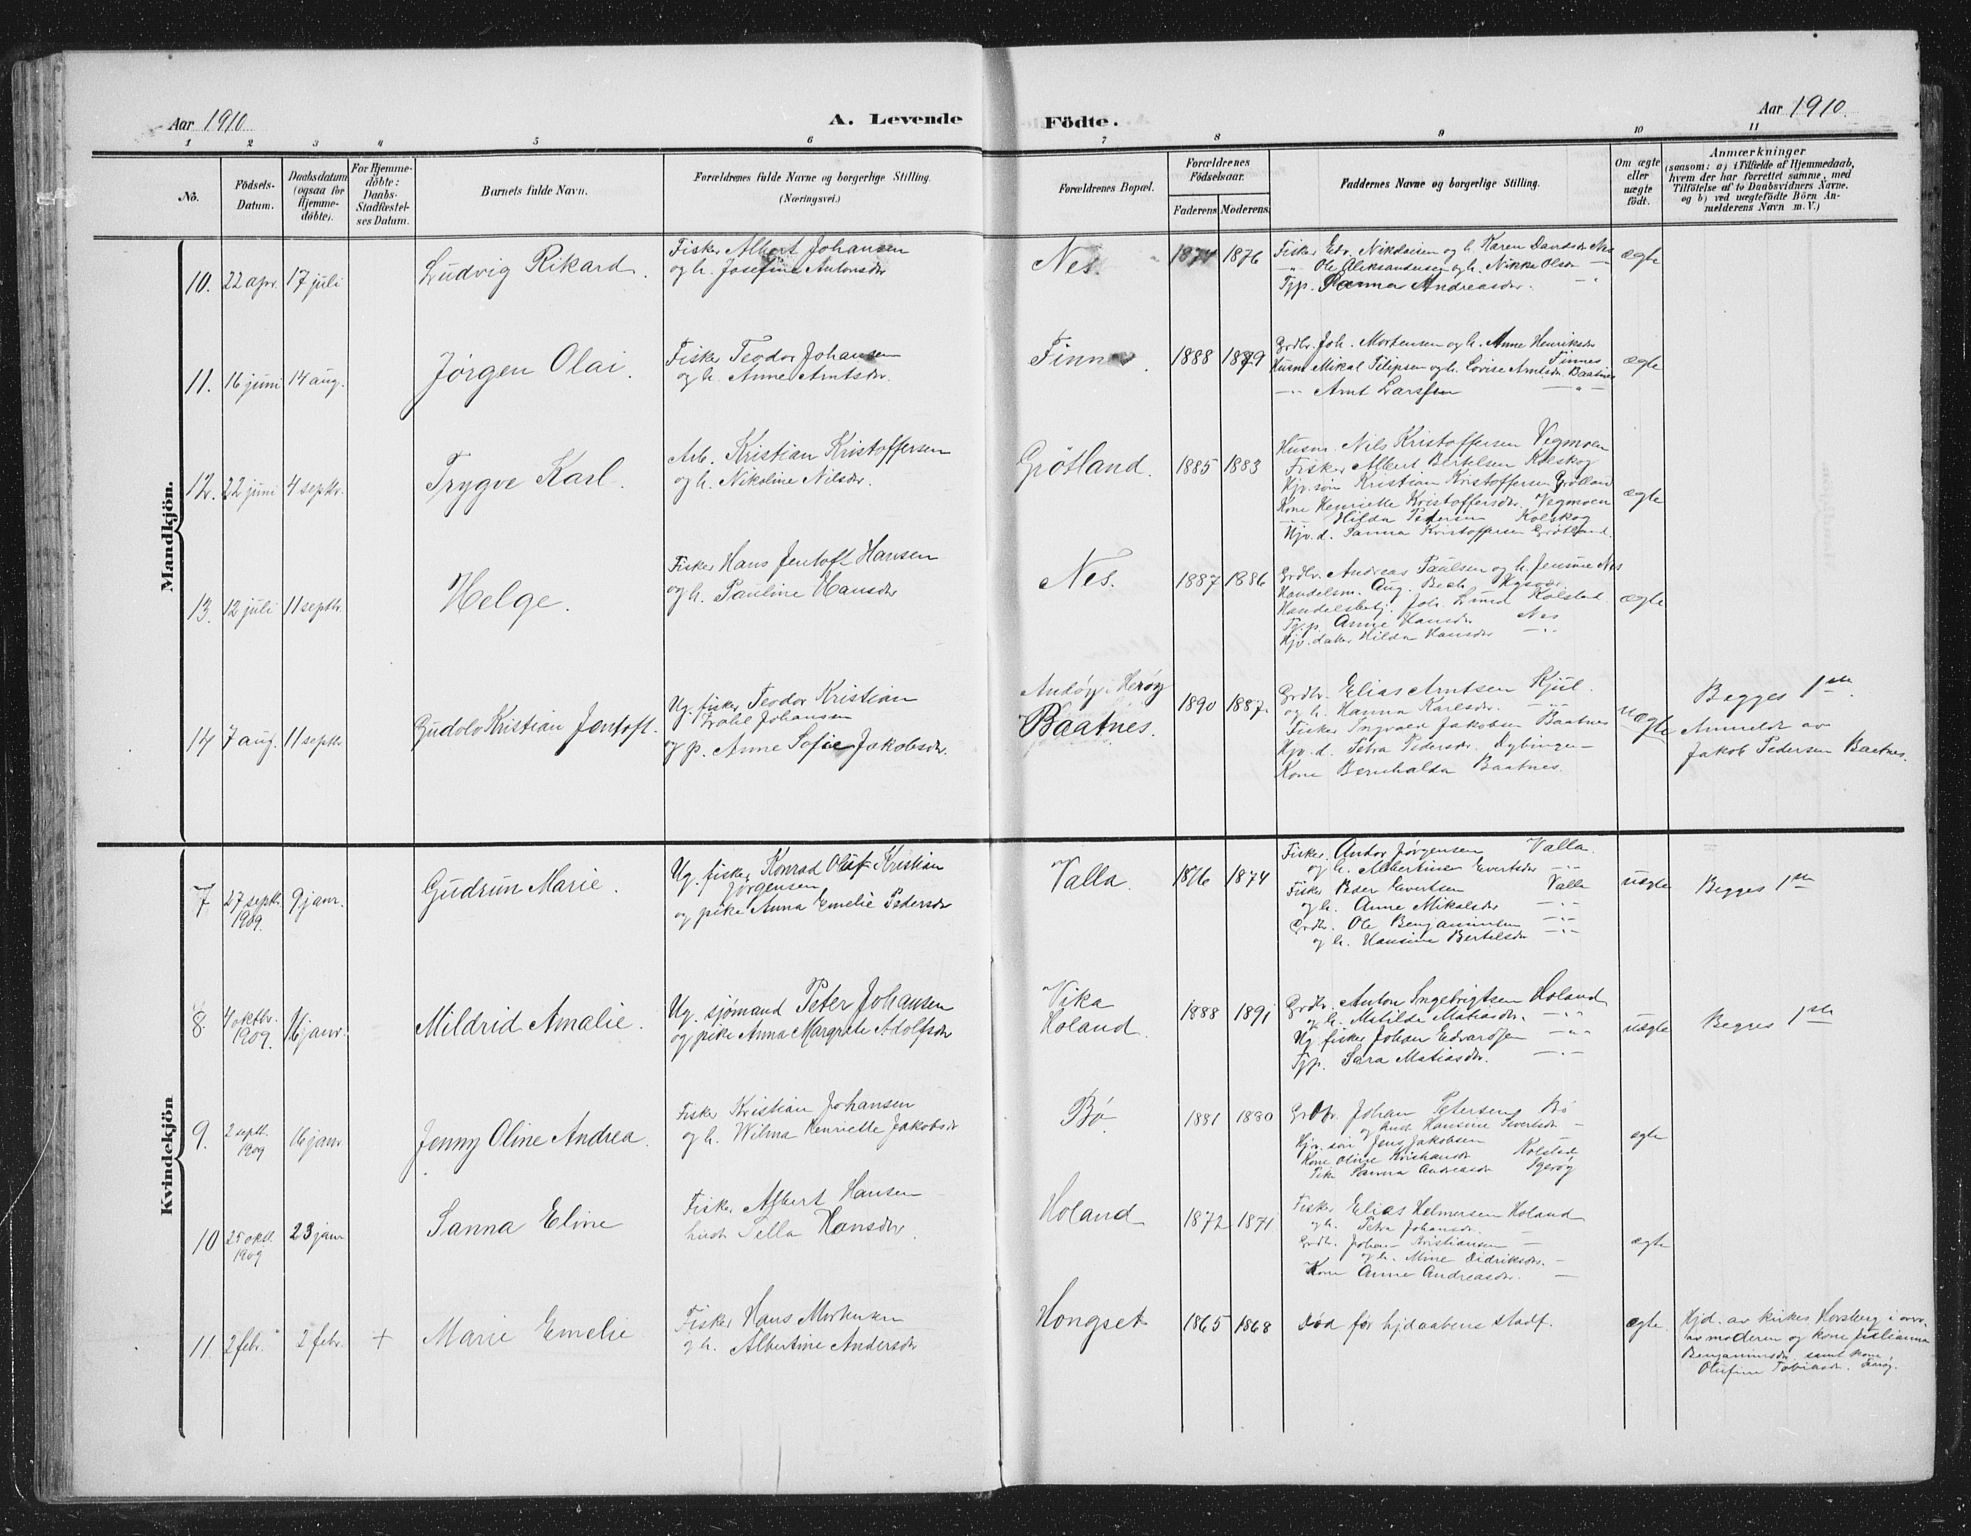 Aar 1910.
A. Levende Födte.
Aar 1910.
1 2 3 4 5 6 7 8 9 10 11
No.
Födsels-Datum.
Daabsdatum (ogsaa for Hjemme-döbte).
For Hjemme-döbte: Daabs Stadfæstel-ses Datum.
Barnets fulde Navn.
Forældrenes fulde Navne og borgerlige Stilling. (Næringsvei.)
Forældrenes Bopæl.
Forældrenes Födselsaar.
Faderens Moderens.
Faddernes Navne og borgerlige Stilling.
Om ægte eller uægte födt.
Anmærkninger
(saasom: a) i Tilfælde af Hjemmedaab,
hvem der har forrettet samme, med
Tilföielse af to Daabsvidners Navne.
og b) ved uægtefödte Börn An-
melderens Navn m. V.)
Mandkjön.
10. 22 apr. 17 juli Ludvig Rikard.
Fisker Albert Johansen
og h. Josefine Antonsdr
Nes. 1874 1876
Fisker Edv. Nikolaisen og h. Karen Davidsdr Nes
Ole Aleksandersen og h. Nikke Olsdr
Tjp. Sanna Andreasdr.
ægte
11. 16 juni 14 aug. Jørgen Olai.
Fisker Teodor Johansen
og h. Anne Arntsdr.
Finnes. 1888 1889
Grdbr. Joh. Mortensen og h. Anne Henriksdr Finnes
Husm. Mikal Filipsen og h. Lovise Arntsdr. Baatnes
Arnt Larssen
ægte
12. 22 juni 4 septbr. Trygve Karl.
Arb. Kristian Kristoffersen
og h. Nikoline Nilsdr.
Grötland. 1885 1883
Husm. Nils Kristoffersen Vegmoen
Fisker Albert Bertelsen Kolskog
Hjv. søn Kristian Kristoffersen Grötland
Kone Henriette Kristoffersdr. Vegmoen
Hilda Pedersen Kolskog
Hjv. d. Sanna Kristoffersen Grötland.
ægte
13. 12 juli 11 septbr. Helge.
Fisker Hans Jentoft Hansen
og h. Pauline Hansdr
Nes. 1887 1886
Grdbr. Andreas Paulsen og h. Jensine Nes
Handelsm. Aug. Bech
Handelsbetj. Joh. Lund Kolstad.
Tj.p. Anne Hansdr Nes
Hjv. datter Hilda Hansdr
ægte
14 7 aug. 11 septbr Gudolv Kristian Jentoft.
Ug. fisker Teodor Kristian
Johansen
og p. Anne Sofie Jakobsdr.
Andöy. Heröy
Baatnes. 1890 1887.
Grdbr. Elias Arntsen Kjul.
og h. Hanna Karlsdr.
Fisker Ingvald Jakobsen Baatnes
Hjv. d. Petra Pedersdr.
Kone Bernhalda Baatnes.
uægte
Begges 1ste.
Anmeldt av
Jakob Pedersen Baatnes.
Kvindekjön
7 27 septbr. 1909. 9 janr. Gudrun Marie.
Ug. fisker Konrad Olaf Kristian
Jörgensen
og pike Anna Emelie Pedersdr
Valla. 1876 1874
Fisker. Andor Jørgensen Valla.
og h. Albertine Evertsdr
Fisker Peder Evertsen Valla
og h. Anne Mikalsdr
Grdbr. Ole Benjaminsen
og h. Hansine Bertelsdr
uægte
Begges 1ste
8 4 oktbr. 1909. 16 janr. Mildrid Amalie.
Ug. sjømand Peter Johansen
og pike Anna Margrete Adolfsdr
Vika
Holand. 1888 1891
Grdbr. Anton Ingebrigtsen Holand
og h. Metilde Matiasdr.
Ug. fisker Johan Edvardsen
Tjp. Sara Matiasdr.
uægte
Begges 1ste
9. 2 septb. 1909 16 janr Jenny Oline Andrea.
Fisker Kristian Johansen
og h. Wilma Henriette Jakobsdr
Bø. 1881 1880
Grdbr. Johan Petersen Bö
og Hansine Sivertsdr
Hjv. søn Jens Jakobsen Kolstad
Kone Oline Kristiansdr
Pike Sanna Andreasdr
ægte
10 25 oktb. 1909 23 janr Sanna Eline
Fisker Albert Hansen
hust. Sella Hansdr.
Holand 1872 1871
Fisker Elias Helmersen Holand
og h. Petra Johansdr.
Grdb. Johan Kristiansen
og h. Mine Didriksdr.
Kone Anne Andreasdr.
ægte
11. 2 febr. 2 febr. + Marie Emelie
Fisker Hans
og h. Albertine Andersdr
Hongset 1865 1868
Død før hjdaabens stadf.
ægte.
Hjd. av kirkes. i overv.
av moderen og kone Julianna
Benjaminsdr. samt kone
Olufine Tobiasdr.